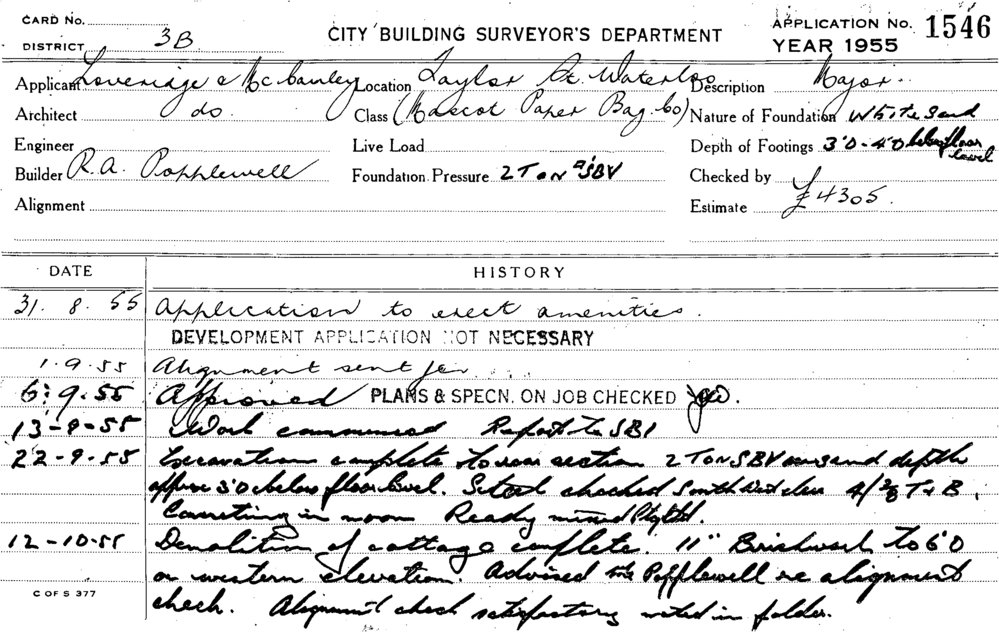 CARD No.
DISTRICT 3B
CITY BUILDING SURVEYOR'S DEPARTMENT
APPLICATION No. 1546
YEAR 1955
Applicant Loveridge & McCawley Location Taylor St. Waterloo Description Major
Architect do. Class (Mascot Paper Bag Co) Nature of Foundation White Sand
Engineer Live Load Depth of Footings 3'0 - 4'0 below floor level
Builder R.A. Popplewell Foundation Pressure 2 Ton SBV Checked by
Alignment Estimate £4305.
DATE HISTORY
31. 8. 55 Application to erect amenities.
DEVELOPMENT APPLICATION NOT NECESSARY
1.9.55 Alignment sent for
6.9.55 Approved PLANS & SPECN. ON JOB CHECKED
13-9-55 Work commenced Report to SBI
22-9-55 Excavation complete to rear section 2 Ton SBV on sand depth
approx 3'0 below floor level. Steel checked South West 4/ T & B.
Concreting in noon Ready mixed
12-10-55 Demolition of cottage complete. 11" Brickwork to 6'0
on western elevation. Advised Popplewell re alignment
C OF S 377 check. Alignment check satisfactory noted in folder.